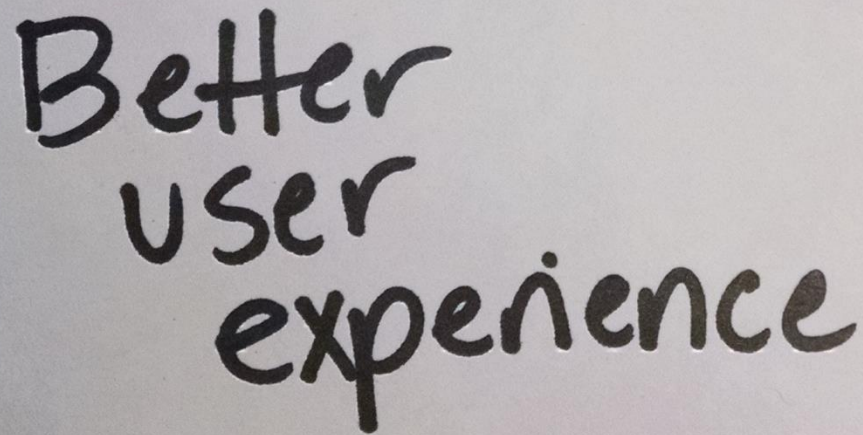 Better
user
experience